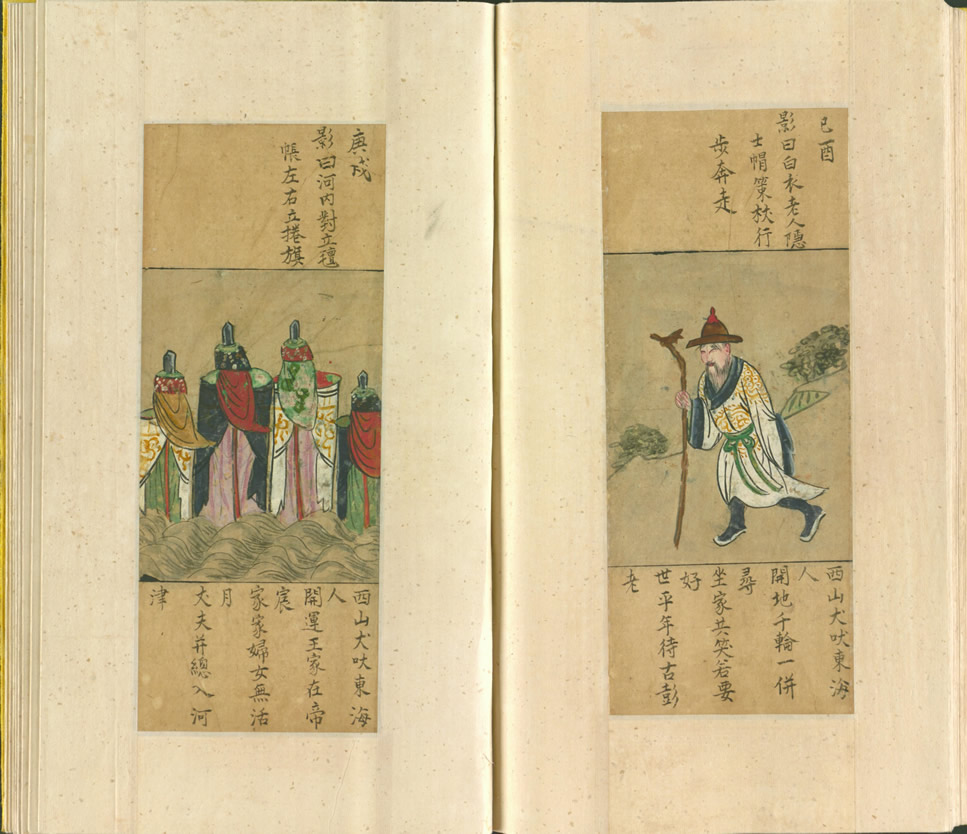 己酉
影曰白衣老人隱
士帽策杖行
步奔走
西山犬吠東海
人
開地千輪一併
尋
坐家共笑若要
好
世平年待古彭
老
庚戌
影曰河内對立氊
帳左右立捲旗
西山犬吠東海
人
開運王家在帝
宸
家家婦女無活
月
丈夫并總入河
津